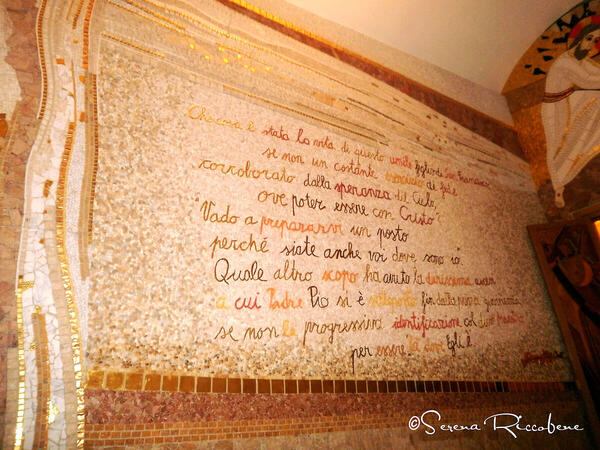 Che cosa è stata la vita di questo umile figlio di San Francesco
se non un costante esercizio di fede
corroborato dalla speranza del Cielo,
ove poter essere con Cristo?
"Vado a prepararvi un posto
perché siate anche voi dove sono io".
Quale altro scopo ha avuto la durissima ascesi
a cui Padre Pio si è sottoposto fin dalla prima giovinezza
se non la progressiva identificazione col divino Maestro
per essere là dove Egli è
©Serena Riccobene